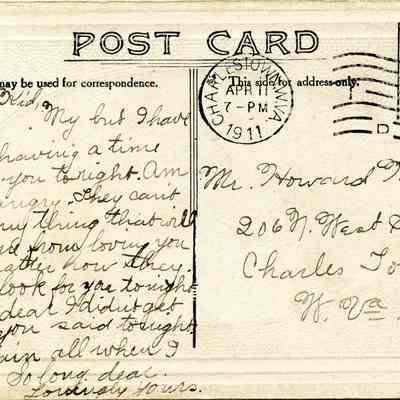 POST CARD
may be used for correspondence.
This side for address only.
CHARLESTOWN W.VA.
APR 11
7-PM
1911
D
Kid,
My but I have
having a time
you to right. Am
angry. They can't
any thing that will
from loving you
how they.
look for you tonight
dear I didn't get
you said tonight
all when I
So long dear.
Lovingly Yours.
Mr. Howard
206 N. West
Charles To
W. Va